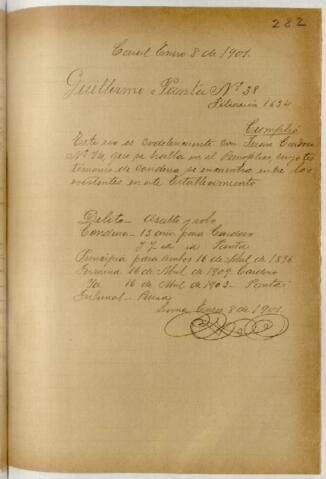 282
Carcel Enero 8 de 1901.
Guillermo Panta Nº 38
Filiación 1634
Cumplió
Este reo es codelincuente con Cordero
Nº 74, que se halla en el Panoptico, cuyo tes
timonio de condena se encuentra entre los
existentes en este Establecimiento
Delito - Asalto y robo
Condena - 13 años para Cordero
y 7 id id Panta
Principia para ambos 16 de Abril de 1896
Termina 16 de Abril de 1909 Cordero
Id 16 de Abril de 1903 - Panta
Tribunal - Piura
Lima Enero 8 de 1901